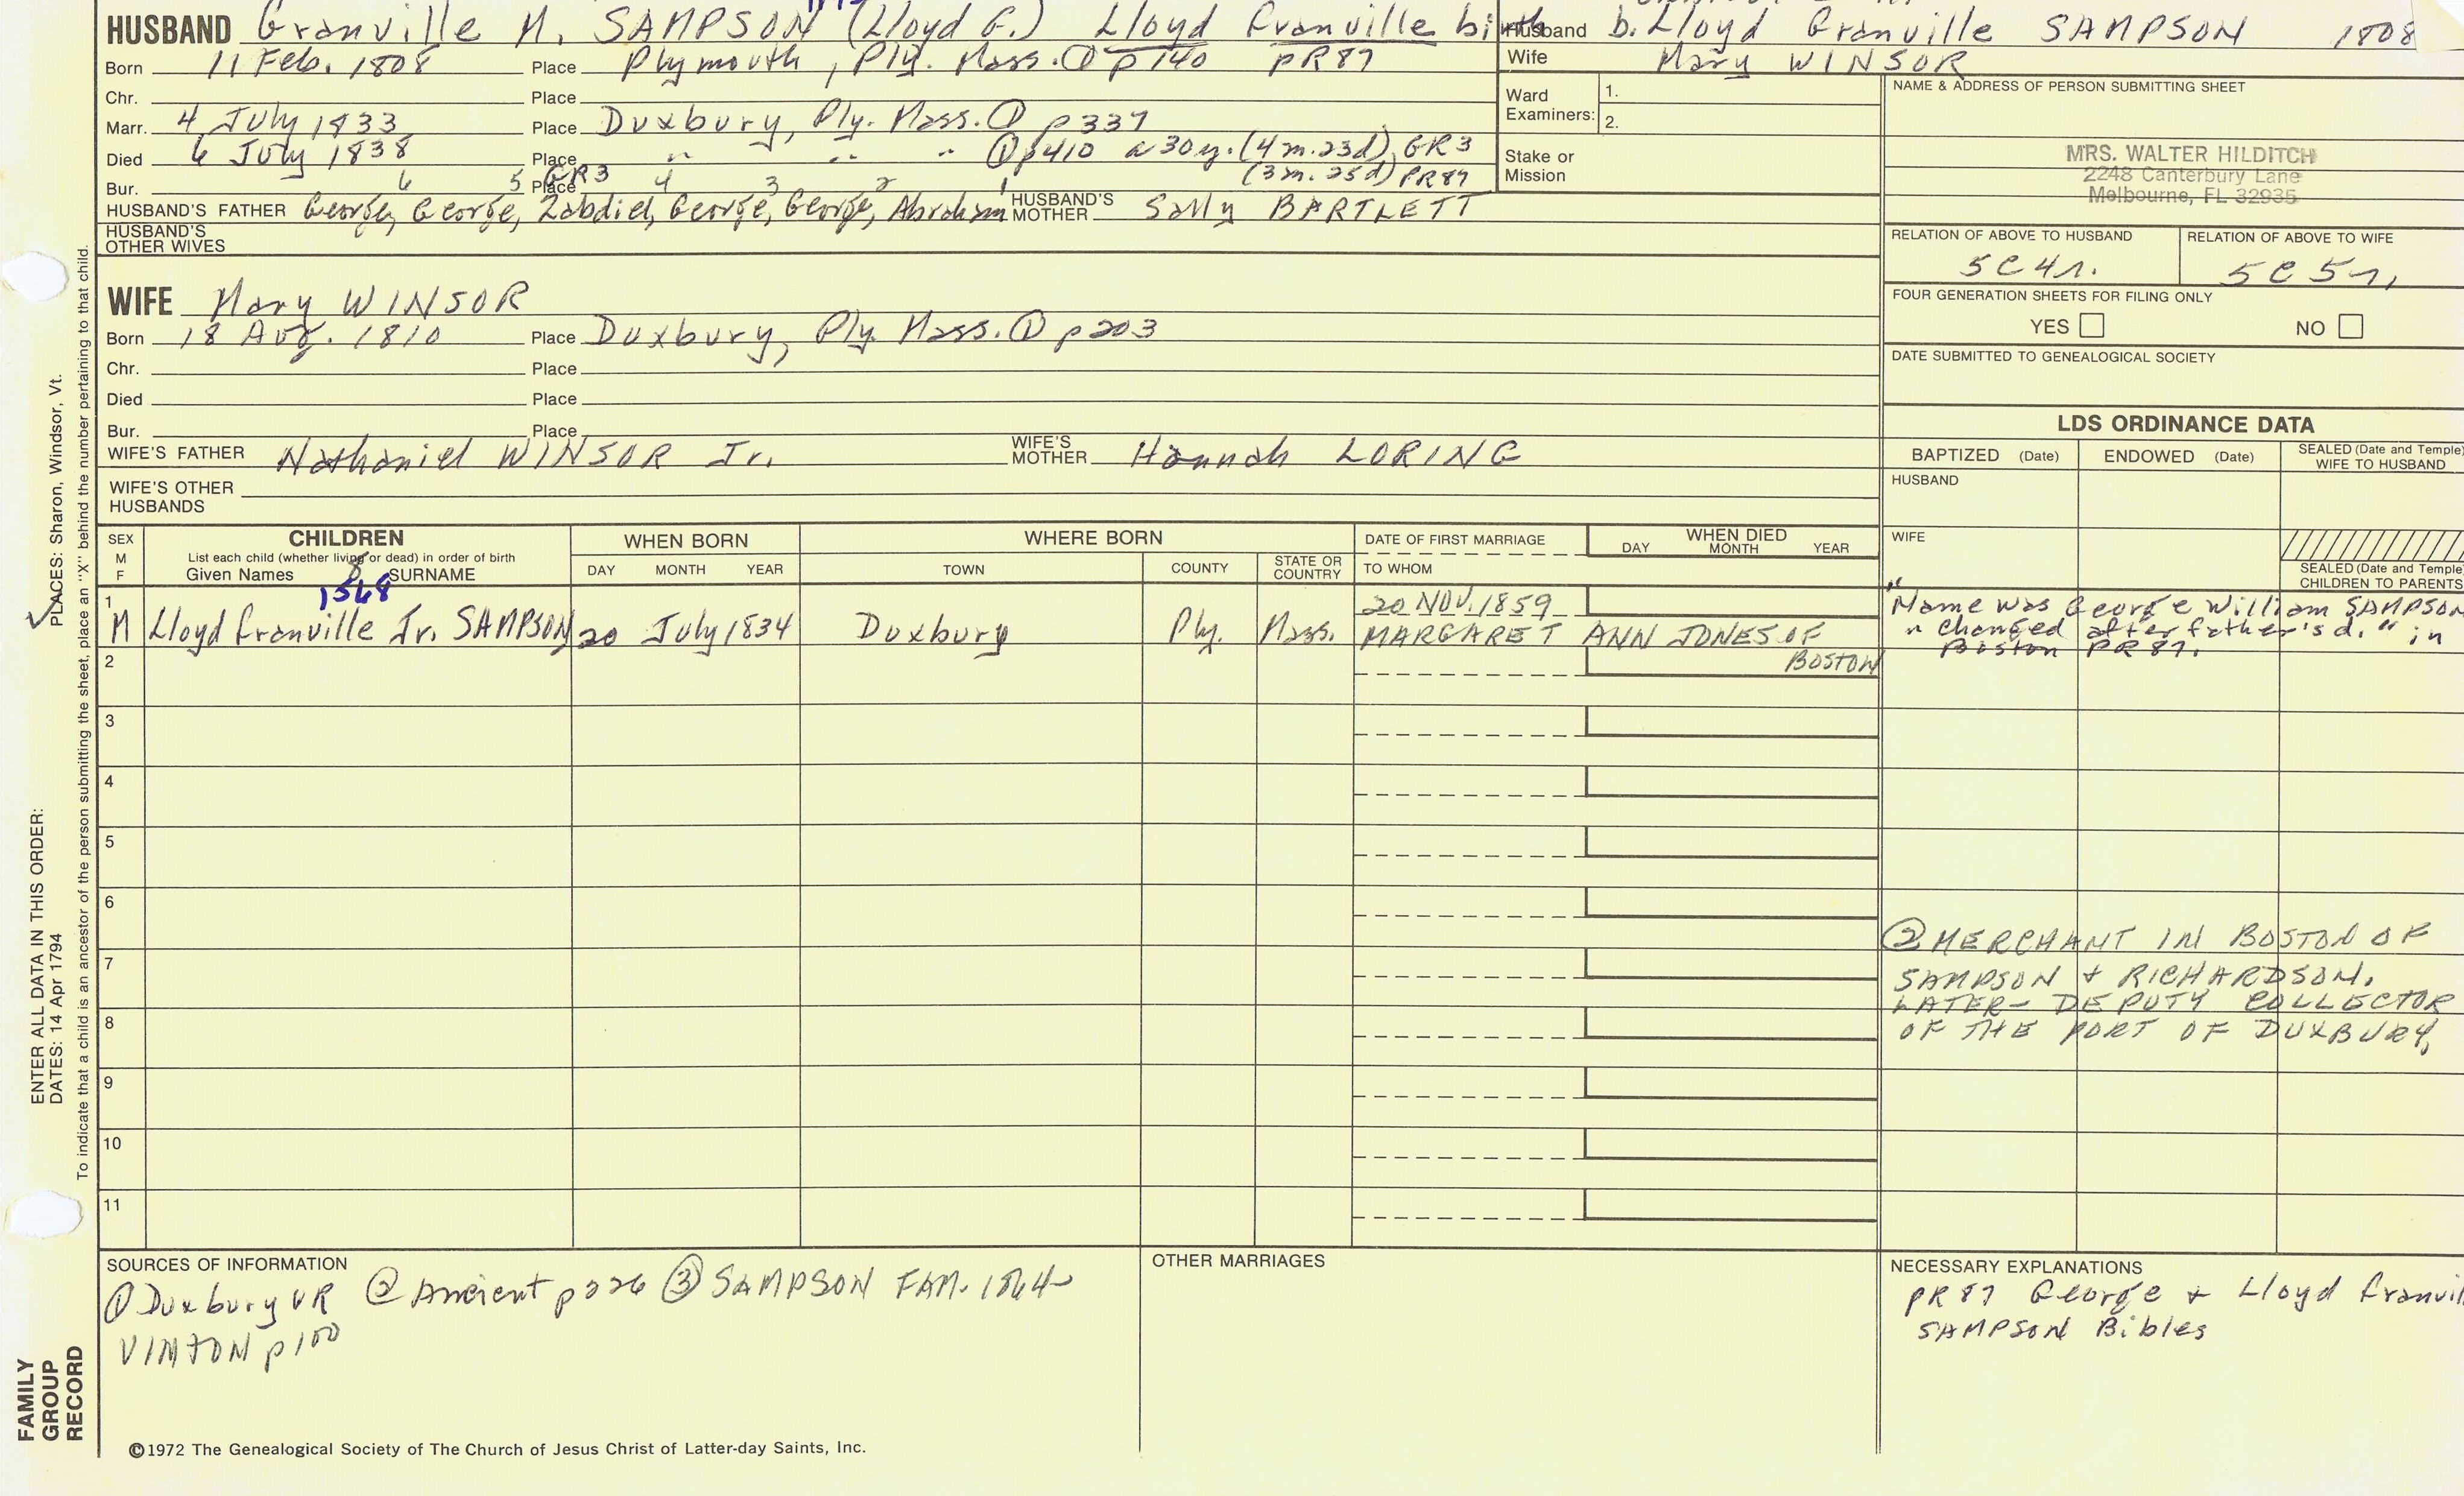 HUSBAND Granville M. SAMPSON (Lloyd G.) Lloyd Granville birth
Born 11 Feb. 1808 Place Plymouth, Ply. Mass. ① p140 PR87
Chr. Place
Marr. 4 July 1833 Place Duxbury, Ply. Mass. ① p337
Died 6 July 1838 Place " " " ① p410 a 30 y. (4 m. 23d) GR3
Bur. Place GR3 (3 m. 25d) PR87
6 5 4 3 2 1
HUSBAND'S FATHER George, George, Zabdiel, George, George, Abraham HUSBAND'S MOTHER Sally BARTLETT
HUSBAND'S OTHER WIVES
Husband b. Lloyd Granville SAMPSON 1808
Wife Mary WINSOR
Ward Examiners: 1.
2.
Stake or Mission
NAME & ADDRESS OF PERSON SUBMITTING SHEET
MRS. WALTER HILDITCH
2248 Canterbury Lane
Melbourne, FL 32935
RELATION OF ABOVE TO HUSBAND RELATION OF ABOVE TO WIFE
5C4r. 5C5r.
FOUR GENERATION SHEETS FOR FILING ONLY
YES NO
DATE SUBMITTED TO GENEALOGICAL SOCIETY
WIFE Mary WINSOR
Born 18 Aug. 1810 Place Duxbury, Ply. Mass. ① p203
Chr. Place
Died Place
Bur. Place
WIFE'S FATHER Nathaniel WINSOR Jr. WIFE'S MOTHER Hannah LORING
WIFE'S OTHER HUSBANDS
LDS ORDINANCE DATA
BAPTIZED (Date) ENDOWED (Date) SEALED (Date and Temple) WIFE TO HUSBAND
HUSBAND
WIFE
SEALED (Date and Temple) CHILDREN TO PARENTS
SEX
M
F
CHILDREN
List each child (whether living or dead) in order of birth
Given Names SURNAME
WHEN BORN
DAY MONTH YEAR
WHERE BORN
TOWN COUNTY STATE OR COUNTRY
DATE OF FIRST MARRIAGE
TO WHOM
WHEN DIED
DAY MONTH YEAR
8
1568
1 M Lloyd Granville Jr. SAMPSON 20 July 1834 Duxbury Ply. Mass. 20 NOV. 1859
MARGARET ANN JONES OF
BOSTON
"Name was George William SAMPSON
" changed after father's d." in
Boston PR 87.
2
3
4
5
6
7
8
9
10
11
② MERCHANT IN BOSTON OF
SAMPSON + RICHARDSON.
LATER – DEPUTY COLLECTOR
OF THE PORT OF DUXBURY,
SOURCES OF INFORMATION
① Duxbury VR ② Ancient p226 ③ SAMPSON FAM. 1864
VINTON p100
OTHER MARRIAGES
NECESSARY EXPLANATIONS
PR 87 George + Lloyd Granvil
SAMPSON Bibles
©1972 The Genealogical Society of The Church of Jesus Christ of Latter-day Saints, Inc.
ENTER ALL DATA IN THIS ORDER:
DATES: 14 Apr 1794 PLACES: Sharon, Windsor, Vt.
To indicate that a child is an ancestor of the person submitting the sheet, place an "X" behind the number pertaining to that child.
FAMILY
GROUP
RECORD